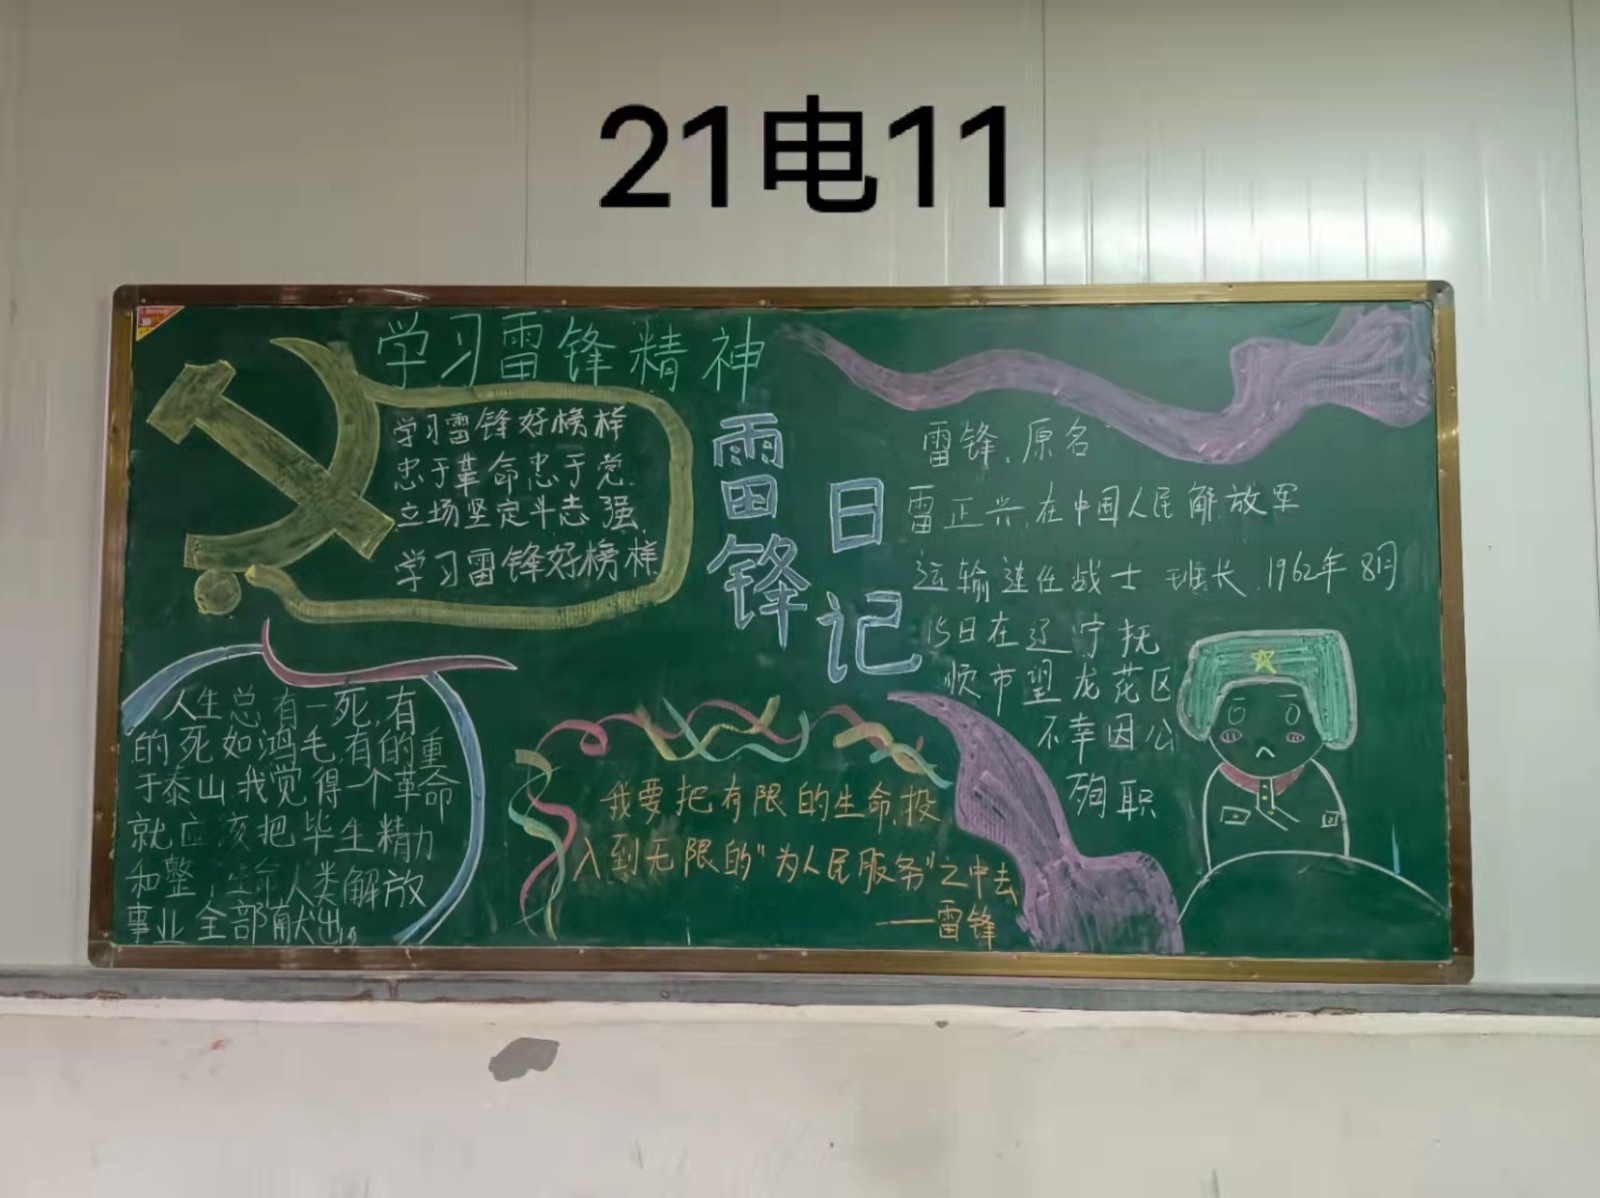 21电11
学习雷锋精神
学习雷锋好榜样
忠于革命忠于党.
立场坚定斗志强.
学习雷锋好榜样
雷锋
日记
雷锋.原名
雷正兴.在中国人民解放军
运输连任战士 班长.1962年8月
15日在辽宁抚
顺市望龙花区
不幸因公
殉职
人生总有一死,有
的死如鸿毛,有的重
于泰山.我觉得一个革命
就应该把毕生精力
和整 生命人类解放
事业全部献出。
我要把有限的生命,投
入到无限的“为人民服务”之中去
——雷锋